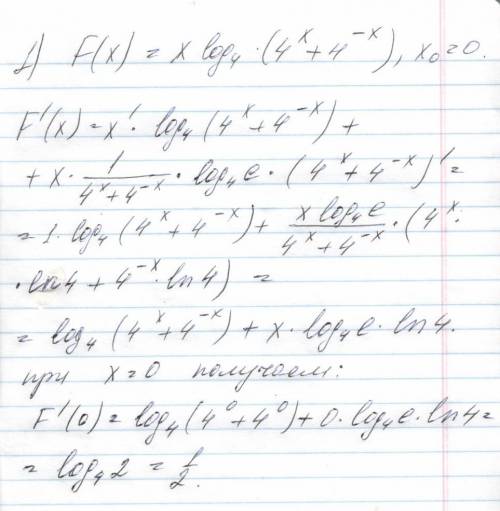 1) F(x) = x log₄·(4ˣ+4⁻ˣ), x₀=0.
F'(x)=x'·log₄(4ˣ+4⁻ˣ)+
+x·1/(4ˣ+4⁻ˣ)·log₄e·(4ˣ+4⁻ˣ)'=
=1·log₄(4ˣ+4⁻ˣ)+ (x log₄e)/(4ˣ+4⁻ˣ)·(4ˣ·
·ln4+4⁻ˣ·ln4) =
=log₄(4ˣ+4⁻ˣ)+x·log₄e·ln4.
при x=0 получаем:
F'(0)=log₄(4⁰+4⁰)+0·log₄e·ln4=
=log₄2=1/2.